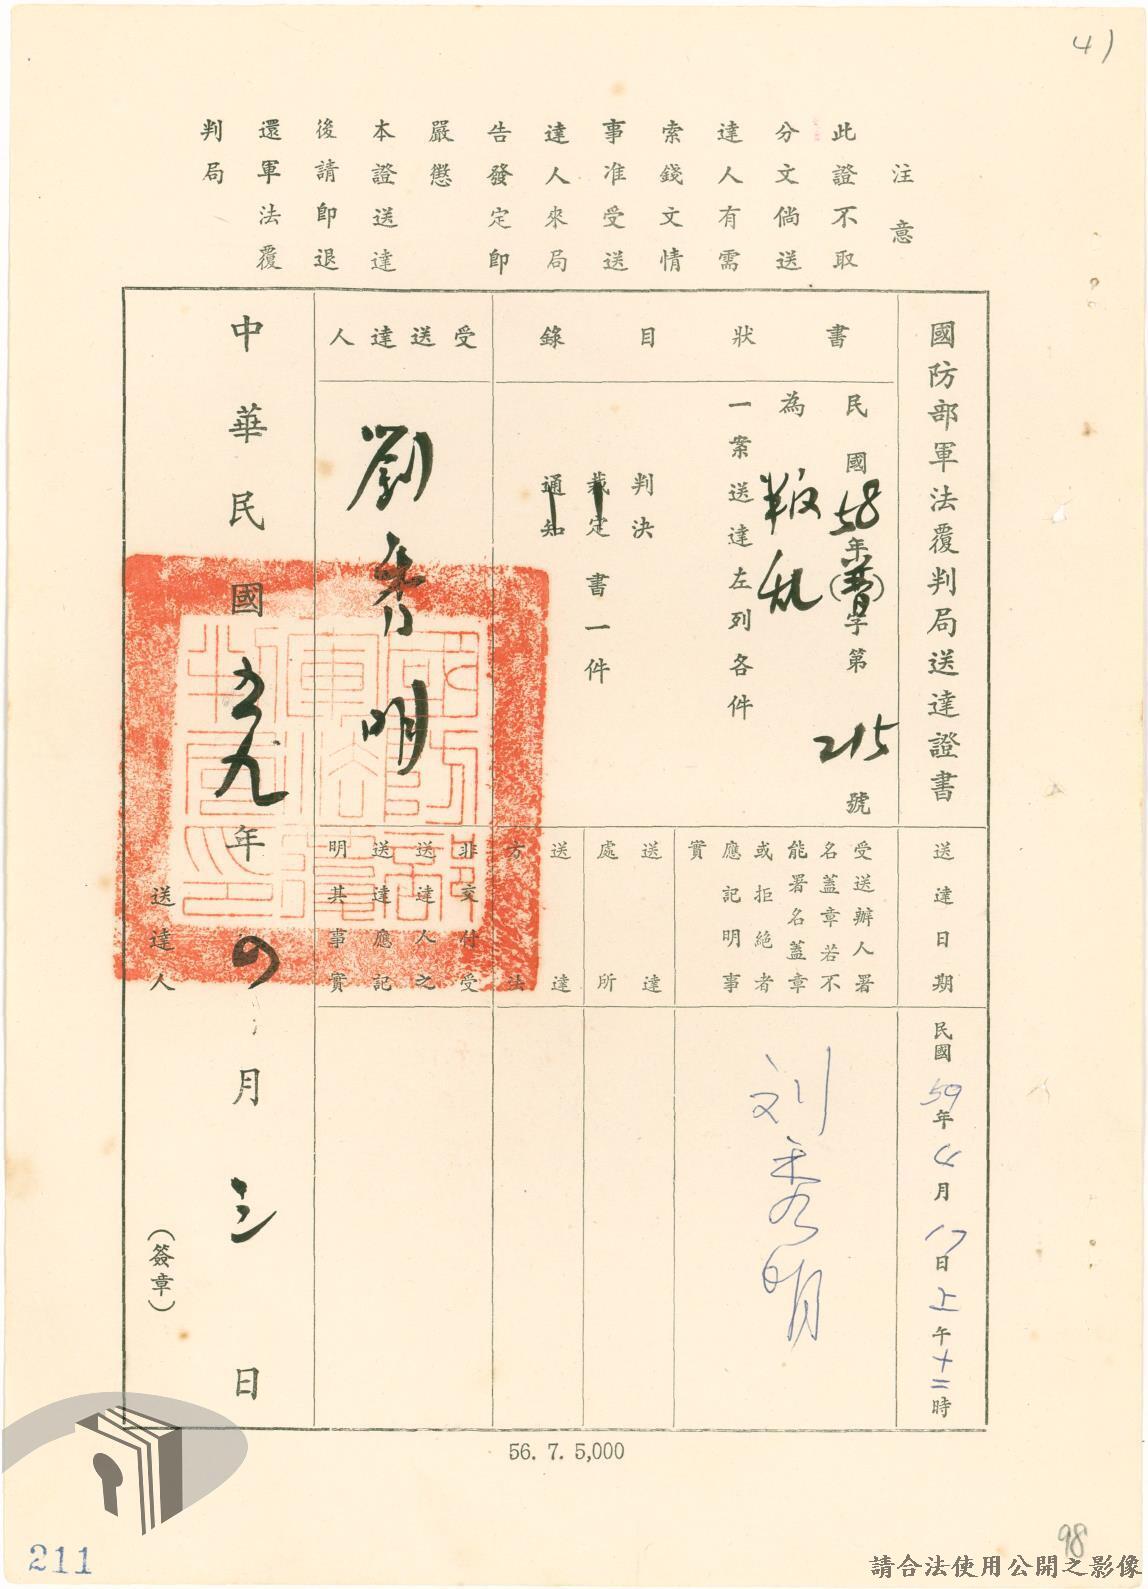 4)
注意
此證不取
分文倘送
達人有需
索錢文情
事准受送
達人來局
告發定即
嚴懲
本證送達
後請即退
還軍法覆
判局
國防部軍法覆判局送達證書
書狀目錄
民國58年(普)字第215號
為叛乱
一案送達左列各件
判決
裁定書一件
通知
受送達人
劉秀明
中華民國五九年四月三日
送達人
(簽章)
送達日期
民國59年4月17日上午十二時
受送辦人署
名蓋章若不
能署名蓋章
或拒絶者
應記明事
實
刘秀明
送達
處所
送達
方法
非交付受
送達人之
送達應記
明其事實
56. 7. 5,000
211
98
請合法使用公開之影像